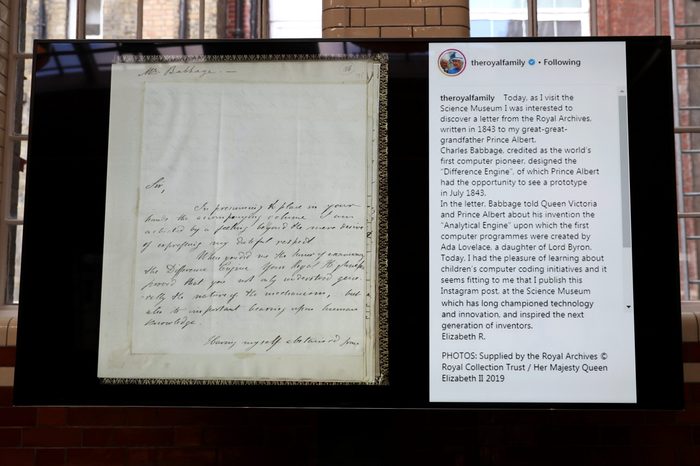 Mr. Babbage.
Sir,
In presuming to place in your
hands the accompanying volume I am
actuated by a feeling beyond the mere desire
of expressing my dutiful respect.
When you did me the honor of examining
the Difference Engine Your Royal Highness
proved that you not only understood gene-
rally the nature of the mechanism, but
also its important bearing upon human
knowledge.
Having myself abstained from
theroyalfamily • Following
theroyalfamily Today, as I visit the
Science Museum I was interested to
discover a letter from the Royal Archives,
written in 1843 to my great-great-
grandfather Prince Albert.
Charles Babbage, credited as the world's
first computer pioneer, designed the
"Difference Engine", of which Prince Albert
had the opportunity to see a prototype
in July 1843.
In the letter, Babbage told Queen Victoria
and Prince Albert about his invention the
"Analytical Engine" upon which the first
computer programmes were created by
Ada Lovelace, a daughter of Lord Byron.
Today, I had the pleasure of learning about
children's computer coding initiatives and it
seems fitting to me that I publish this
Instagram post, at the Science Museum
which has long championed technology
and innovation, and inspired the next
generation of inventors.
Elizabeth R.
PHOTOS: Supplied by the Royal Archives ©
Royal Collection Trust / Her Majesty Queen
Elizabeth II 2019